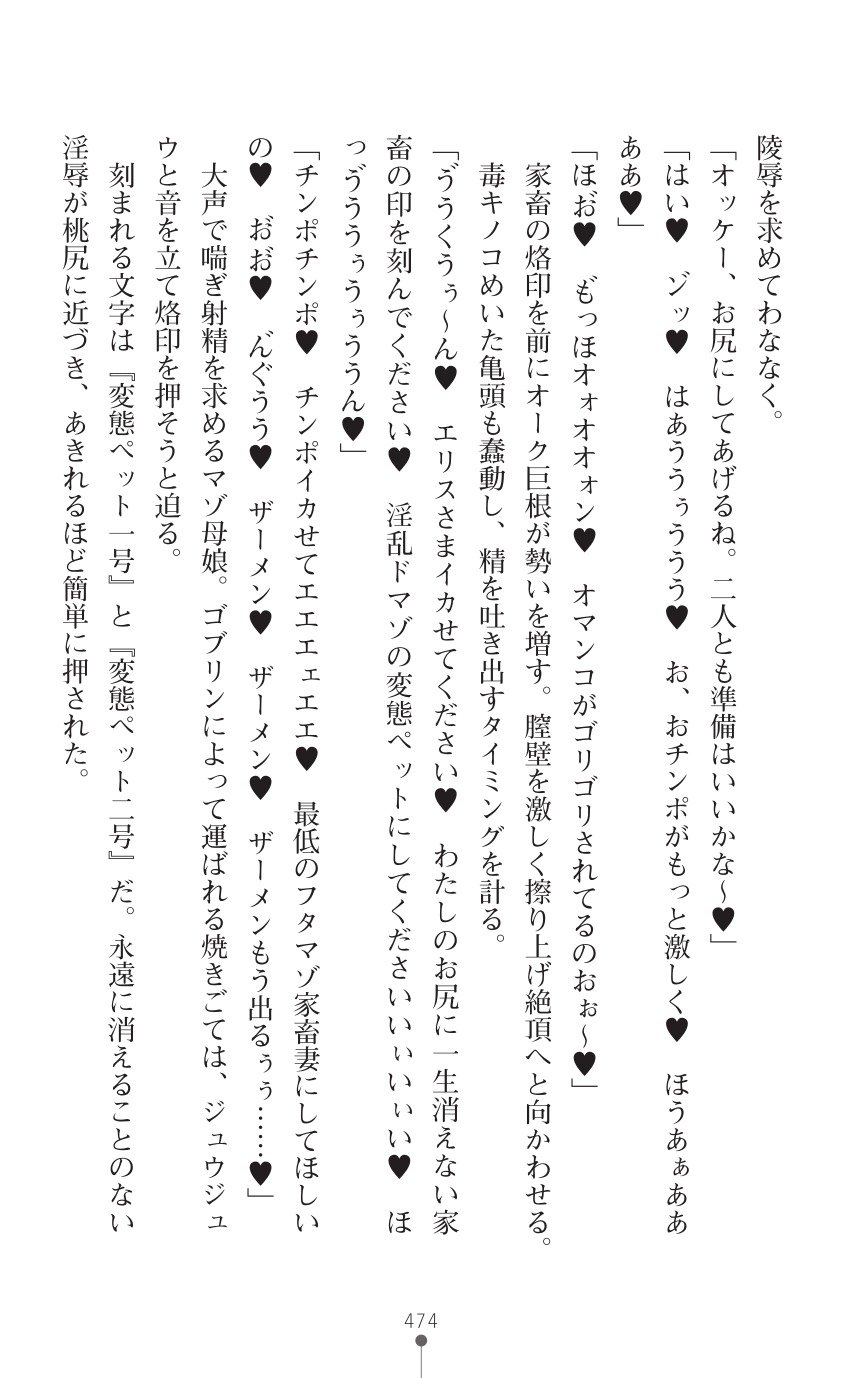 陵辱を求めてわななく。
「オッケー、お尻にしてあげるね。二人とも準備はいいかな～♥」
「はい♥　ゾッ♥　はあううぅううう♥　お、おチンポがもっと激しく♥　ほうあぁああ
ああ♥」
「ほお゛♥　も゛っほオォオオォン♥　オマンコがゴリゴリされてるのおぉ～♥」
家畜の烙印を前にオーク巨根が勢いを増す。膣壁を激しく擦り上げ絶頂へと向かわせる。
毒キノコめいた亀頭も蠢動し、精を吐き出すタイミングを計る。
「ゔうくうぅ～ん♥　エリスさまイカせてください♥　わたしのお尻に一生消えない家
畜の印を刻んでください♥　淫乱ドマゾの変態ペットにしてくださいいぃいぃい♥　ほ
っゔううぅうぅううん♥」
「チンポチンポ♥　チンポイカせてエエエェエエ♥　最低のフタマゾ家畜妻にしてほしい
の♥　お゛お゛♥　ん゛ぐうう♥　ザーメン♥　ザーメン♥　ザーメンもう出るぅぅ……♥」
大声で喘ぎ射精を求めるマゾ母娘。ゴブリンによって運ばれる焼きごては、ジュウジュ
ウと音を立て烙印を押そうと迫る。
刻まれる文字は『変態ペット一号』と『変態ペット二号』だ。永遠に消えることのない
淫辱が桃尻に近づき、あきれるほど簡単に押された。
474